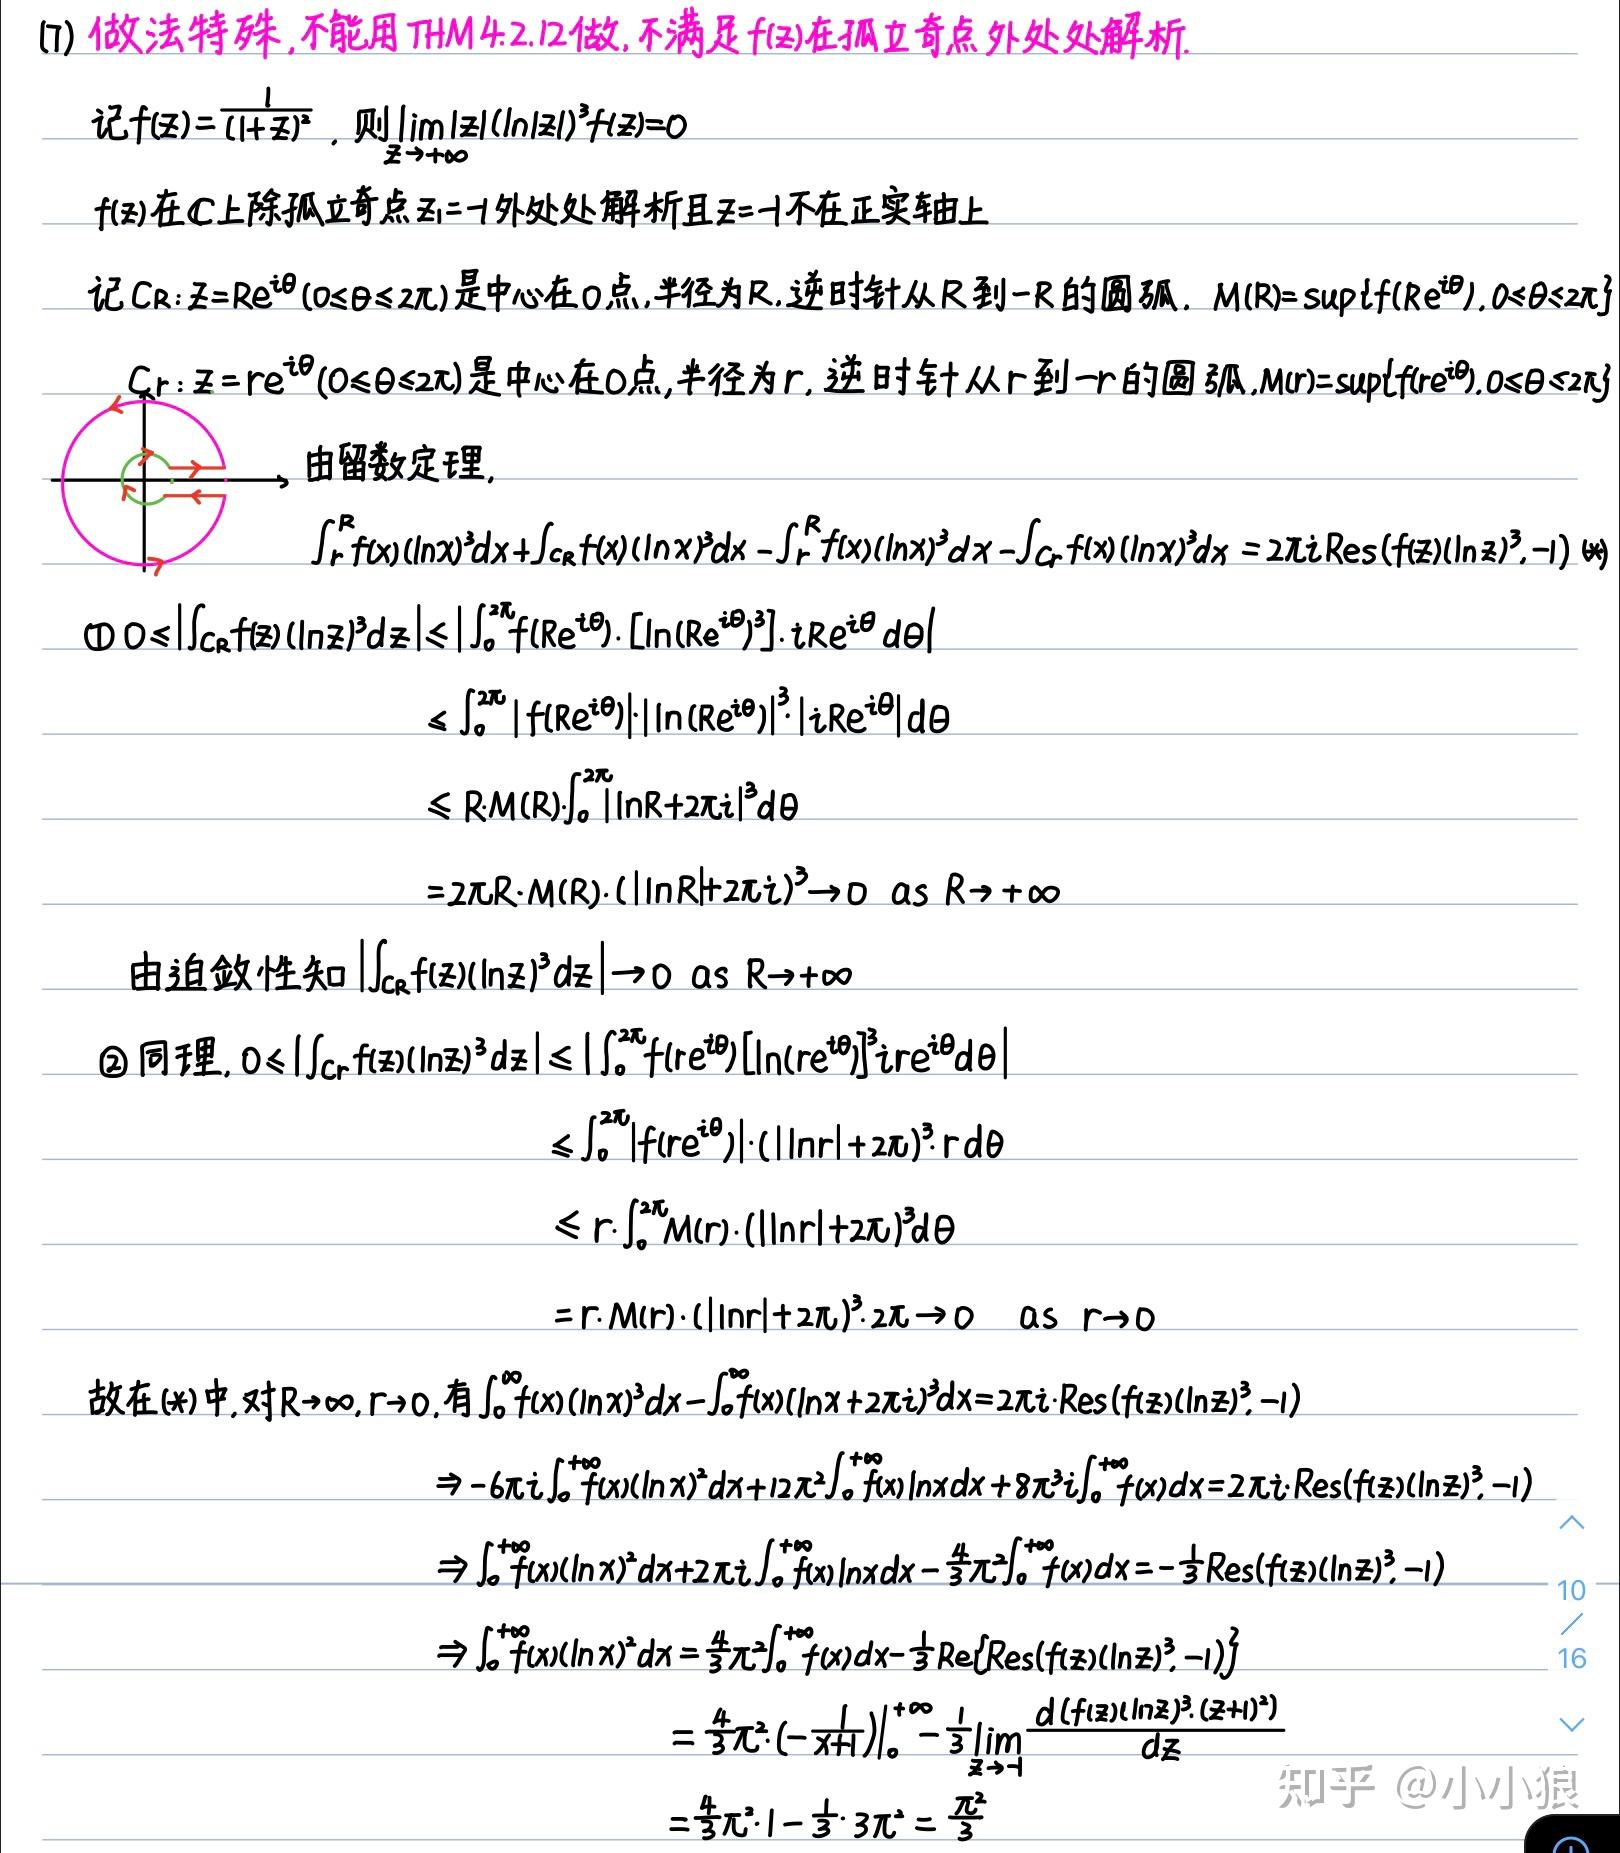 (7) 做法特殊,不能用THM4.2.12做,不满足f(z)在孤立奇点外处处解析.
记f(z)=1/(1+z)², 则lim_{z→+∞}|z|(ln|z|)³f(z)=0
f(z)在C上除孤立奇点z₁=-1外处处解析且z=-1不在正实轴上
记C_R: z=Re^{iθ}(0≤θ≤2π)是中心在0点,半径为R,逆时针从R到-R的圆弧. M(R)=sup{f(Re^{iθ}),0≤θ≤2π}
C_r: z=re^{iθ}(0≤θ≤2π)是中心在0点,半径为r,逆时针从r到-r的圆弧,M(r)=sup{f(re^{iθ}),0≤θ≤2π}
由留数定理,
∫_r^R f(x)(lnx)³dx+∫_{C_R}f(x)(lnx)³dx-∫_r^R f(x)(lnx)³dx-∫_{C_r}f(x)(lnx)³dx=2πiRes(f(z)(lnz)³,-1) (*)
① 0≤|∫_{C_R}f(z)(lnz)³dz|≤|∫_0^{2π}f(Re^{iθ})·[ln(Re^{iθ})³]·iRe^{iθ}dθ|
≤∫_0^{2π}|f(Re^{iθ})|·|ln(Re^{iθ})|³·|iRe^{iθ}|dθ
≤R·M(R)·∫_0^{2π}|lnR+2πi|³dθ
=2πR·M(R)·(|lnR|+2πi)³→0 as R→+∞
由迫敛性知|∫_{C_R}f(z)(lnz)³dz|→0 as R→+∞
② 同理,0≤|∫_{C_r}f(z)(lnz)³dz|≤|∫_0^{2π}f(re^{iθ})[ln(re^{iθ})]³ire^{iθ}dθ|
≤∫_0^{2π}|f(re^{iθ})|·(|lnr|+2π)³·rdθ
≤r·∫_0^{2π}M(r)·(|lnr|+2π)³dθ
=r·M(r)·(|lnr|+2π)³·2π→0 as r→0
故在(*)中,对R→∞,r→0,有∫_0^∞f(x)(lnx)³dx-∫_0^∞f(x)(lnx+2πi)³dx=2πi·Res(f(z)(lnz)³,-1)
⇒-6πi∫_0^{+∞}f(x)(lnx)²dx+12π²∫_0^{+∞}f(x)lnxdx+8π³i∫_0^{+∞}f(x)dx=2πi·Res(f(z)(lnz)³,-1)
⇒∫_0^{+∞}f(x)(lnx)²dx+2πi∫_0^{+∞}f(x)lnxdx-4/3π²∫_0^{+∞}f(x)dx=-1/3Res(f(z)(lnz)³,-1)
⇒∫_0^{+∞}f(x)(lnx)²dx=4/3π²∫_0^{+∞}f(x)dx-1/3Re{Res(f(z)(lnz)³,-1)}
=4/3π²·(-1/(x+1))|_0^{+∞}-1/3lim_{z→-1}d(f(z)(lnz)³·(z+1)²)/dz
=4/3π²·1-1/3·3π²=π²/3
10
/
16
知乎 @小小狼